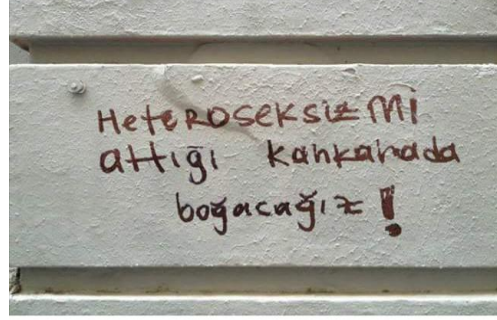 HeteROSeKSizMi
attığı kahkahada
boğacağız!